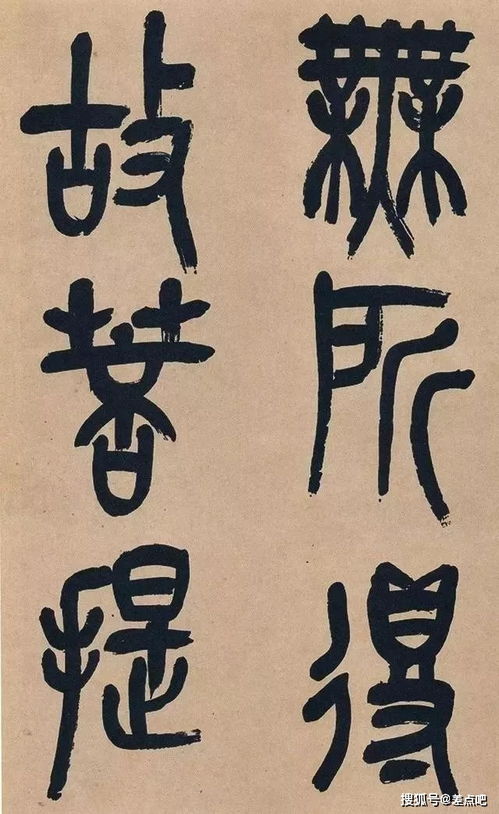 無所得
故菩提
搜狐号@差点吧